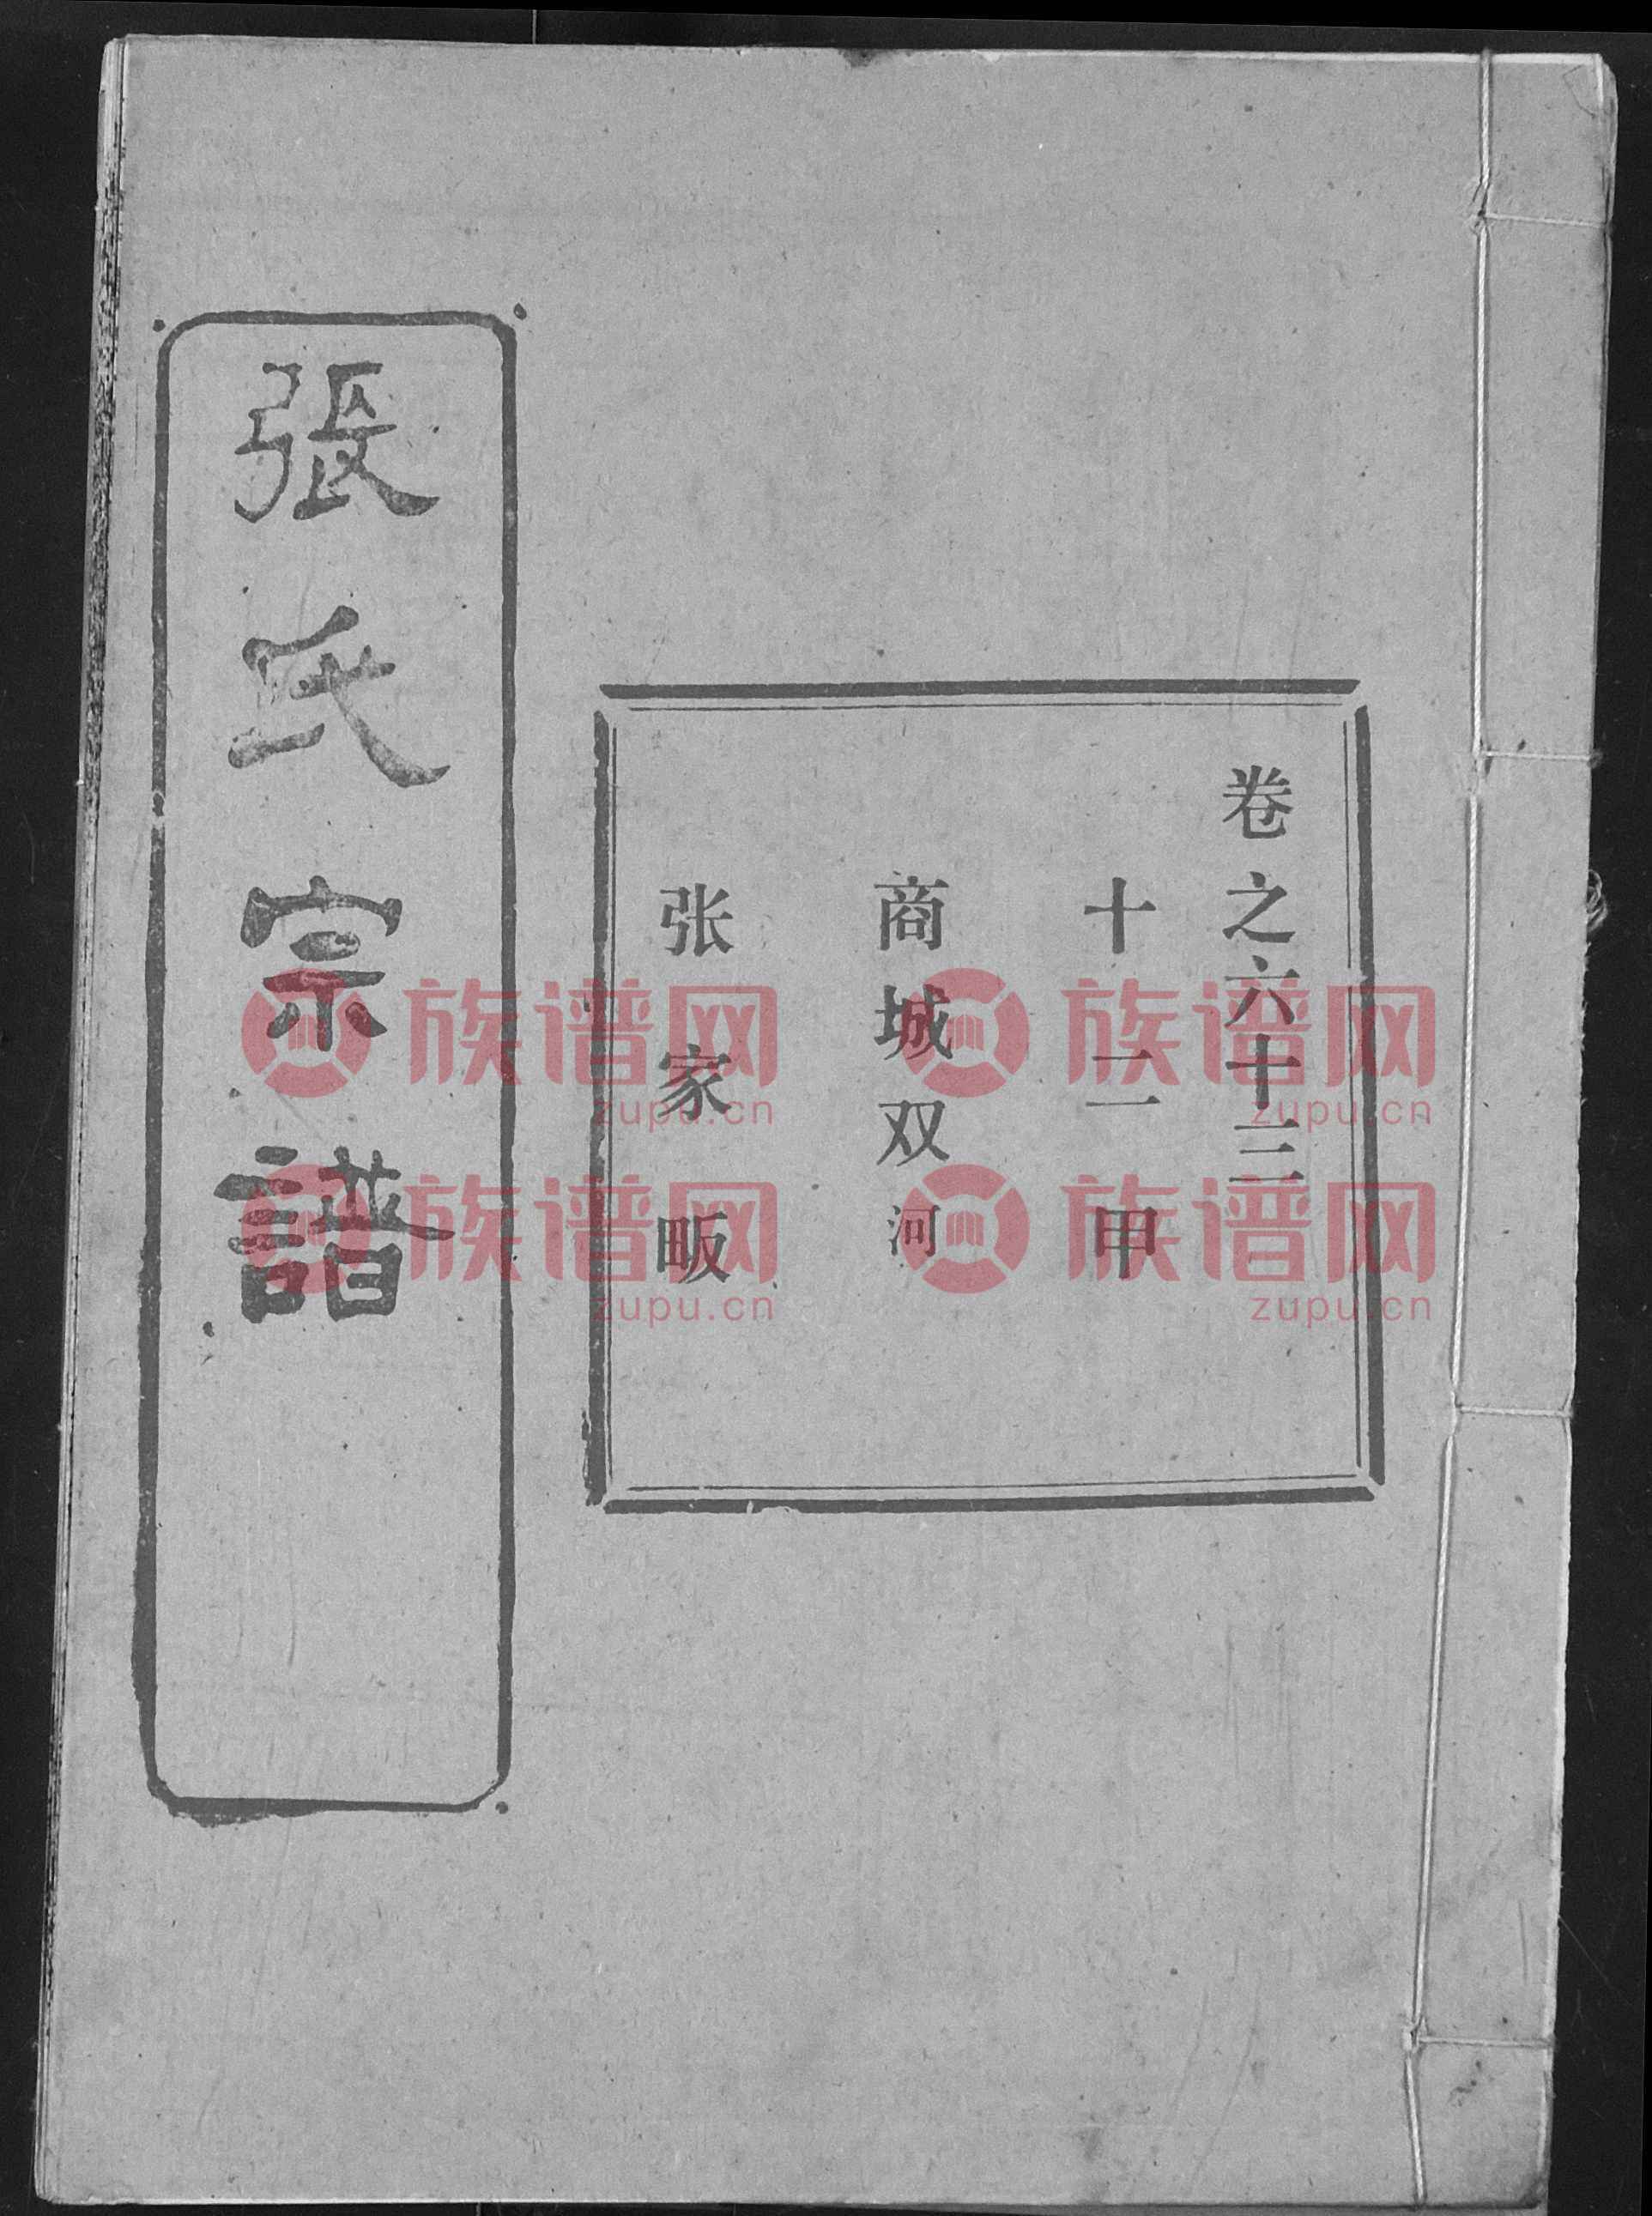 卷之六十三
十二甲
商城双河
张家畈
張氏宗譜
族谱网
zupu.cn
族谱网
zupu.cn
族谱网
zupu.cn
族谱网
zupu.cn